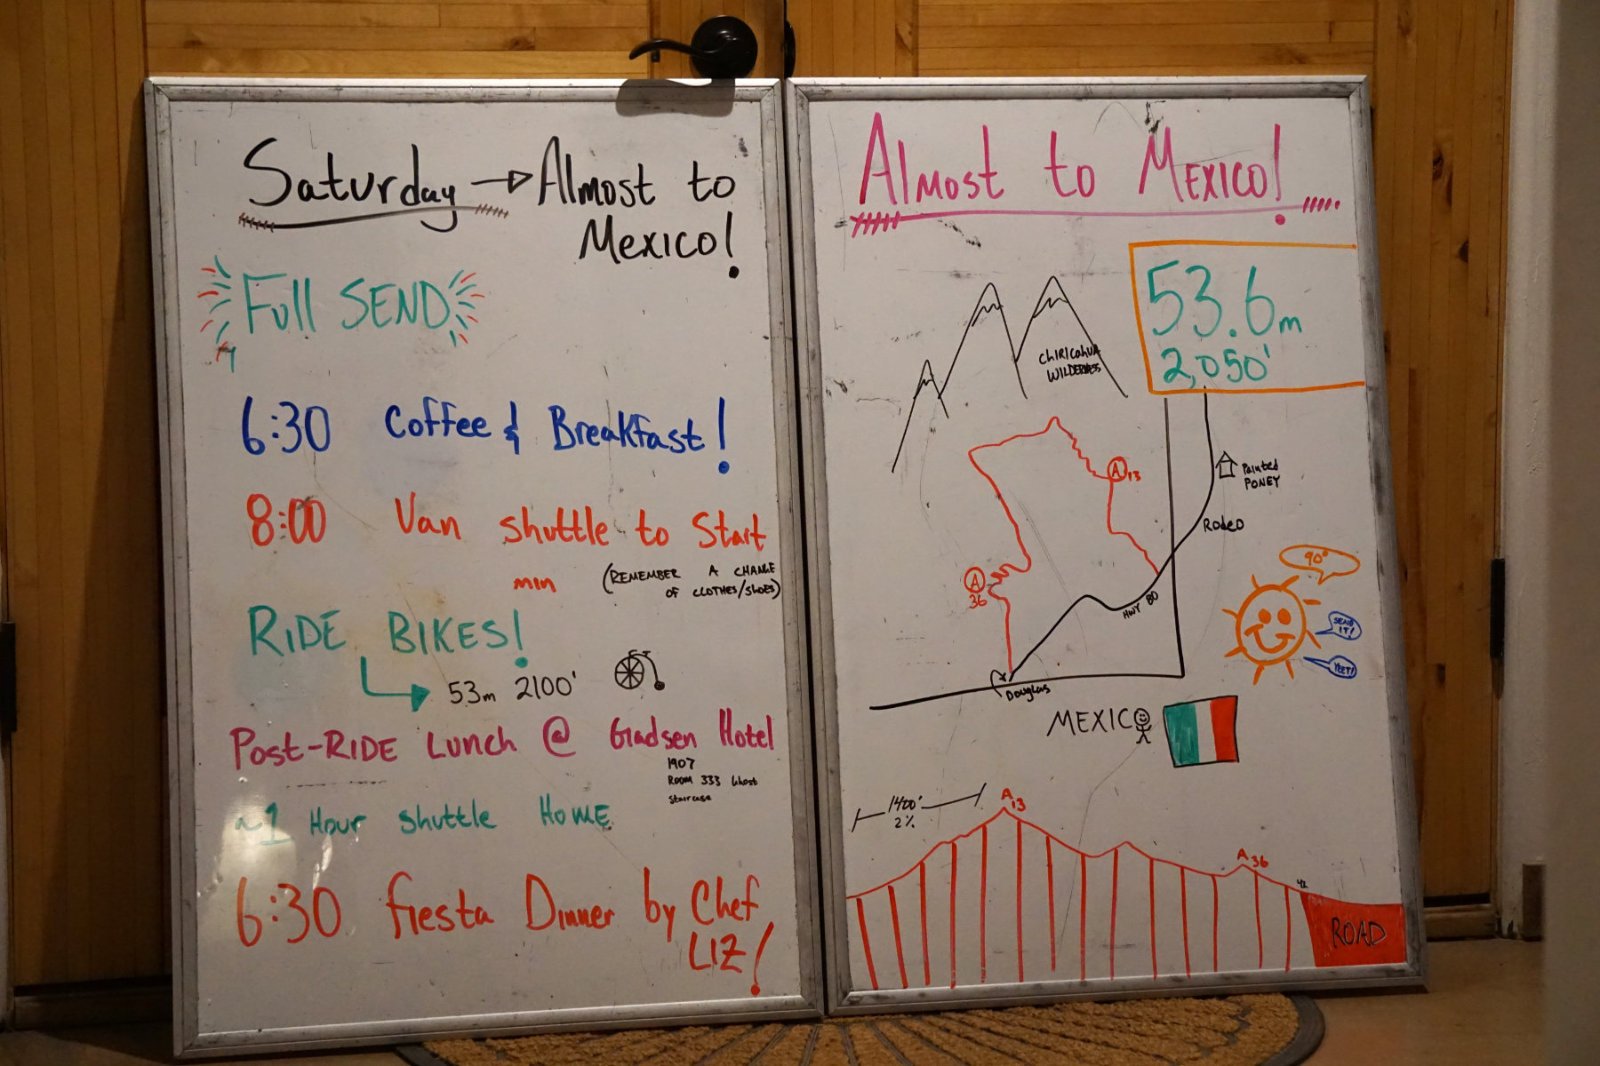 Saturday → Almost to
Mexico!
Full SEND
6:30 Coffee & Breakfast!
8:00 Van shuttle to Start
min (REMEMBER A CHANGE
OF CLOTHES/SHOES)
RIDE BIKES!
53m 2100'
Post-RIDE LUNCH @ Gadsen Hotel
1907
Room 333 Ghost
staircase
~1 Hour shuttle HOME
6:30 fiesta Dinner by Chef
LIZ!
Almost to Mexico!
53.6m
2,050'
CHIRICAHUA
WILDERNESS
A 13
Painted
PONEY
Rodeo
90°
A
36
HWY 80
SEND
IT!
YEET!
Douglas
MEXICO
1400'
2%
A 13
A 36
42
ROAD